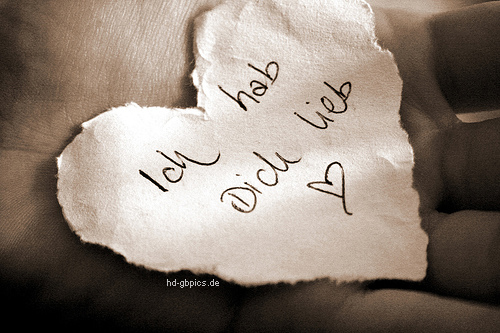 Ich hab
Dich lieb
hd-gbpics.de